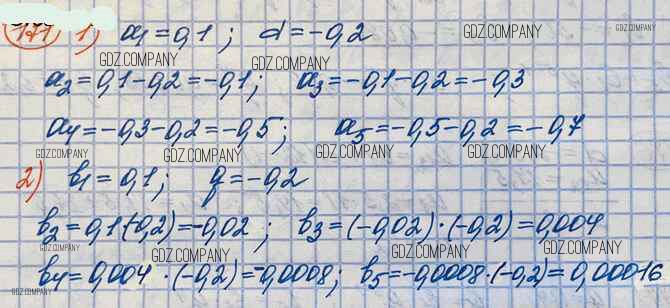 171 1) a₁=0,1; d=-0,2
GDZ.COMPANY GDZ.COMPANY
GDZ.COMPANY GDZ.COMPANY
a₂=0,1-0,2=-0,1; a₃=-0,1-0,2=-0,3
a₄=-0,3-0,2=-0,5; a₅=-0,5-0,2=-0,7
GDZ.COMPANY GDZ.COMPANY GDZ.COMPANY GDZ.COMPANY
2) b₁=0,1; q=-0,2
b₂=0,1·(-0,2)=-0,02; b₃=(-0,02)·(-0,2)=0,004
GDZ.COMPANY GDZ.COMPANY GDZ.COMPANY GDZ.COMPANY
b₄=0,004·(-0,2)=-0,0008; b₅=-0,0008·(-0,2)=0,00016
GDZ.COMPANY